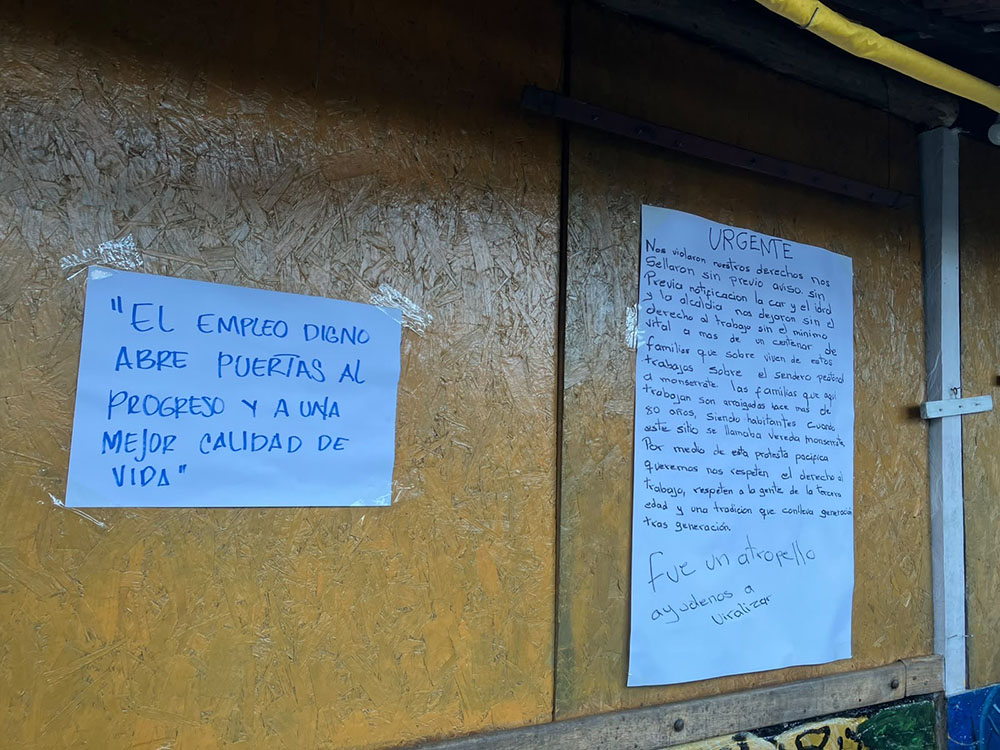 "EL EMPLEO DIGNO
ABRE PUERTAS AL
PROGRESO Y A UNA
MEJOR CALIDAD DE
VIDA"
URGENTE
Nos violaron nuestros derechos nos
Sellaron sin previo aviso sin
Previa notificacion la car y el idrd
y la alcaldia nos dejaron sin el
derecho al trabajo sin el minimo
vital a mas de un centenar de
familias que sobre viven de estos
trabajos sobre el sendero peatonal
a monserrate las familias que aqui
trabajan son arraigadas hace mas de
80 años, siendo habitantes cuando
este sitio se llamaba vereda monserrate
Por medio de esta protesta pacifica
queremos nos respeten el derecho al
trabajo, respeten a la gente de la tercera
edad y una tradición que conlleva generación
tras generación.
Fue un atropello
ayudenos a
viralizar